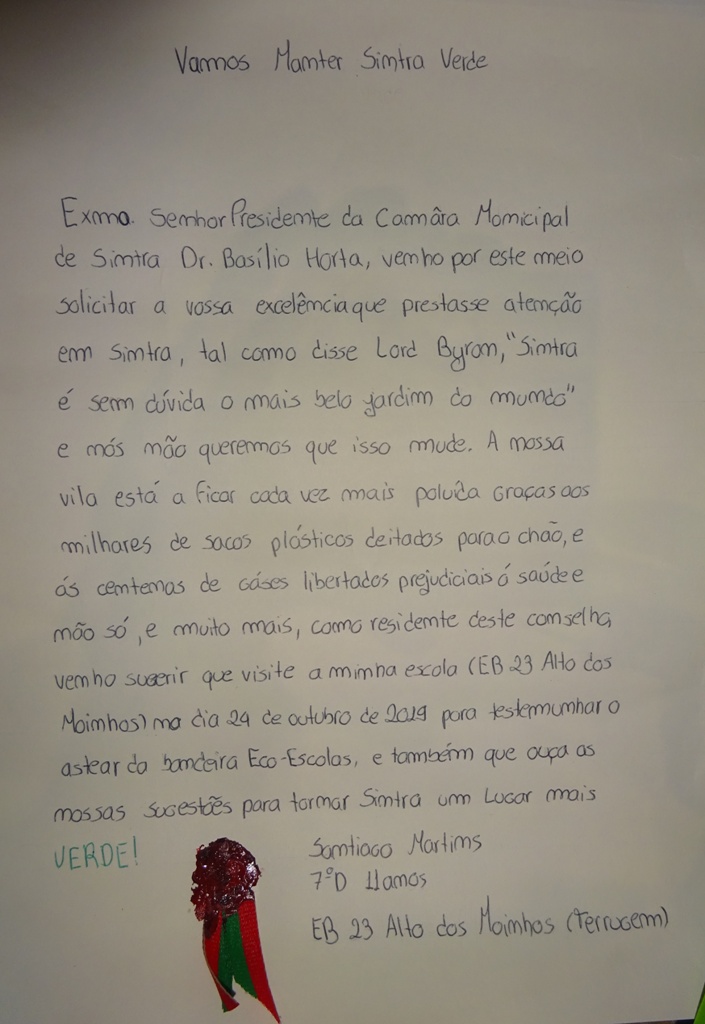 Vamos Manter Sintra Verde
Exmo. Senhor Presidente da Cammâra Monicipal
de Sintra Dr. Basílio Horta, venho por este meio
solicitar a vossa excelência que prestasse atenção
em Sintra, tal como disse Lord Byron, "Sintra
é sem dúvida o mais belo jardim do mundo"
e nós não queremos que isso mude. A nossa
vila está a ficar cada vez mais poluída graças aos
milhares de sacos plásticos deitados para o chão, e
ás centenas de gáses libertados prejudiciais á saúde e
não só, e muito mais, como residente deste conselho,
venho sugerir que visite a minha escola (EB 23 Alto dos
Moinhos) no dia 24 de outubro de 2019 para testemunhar o
astear da bandeira Eco-Escolas, e também que ouça as
nossas sugestões para tornar Sintra um Lugar mais
VERDE!
Santiago Martins
7ºD 11anos
EB 23 Alto dos Moinhos (Terrugem)